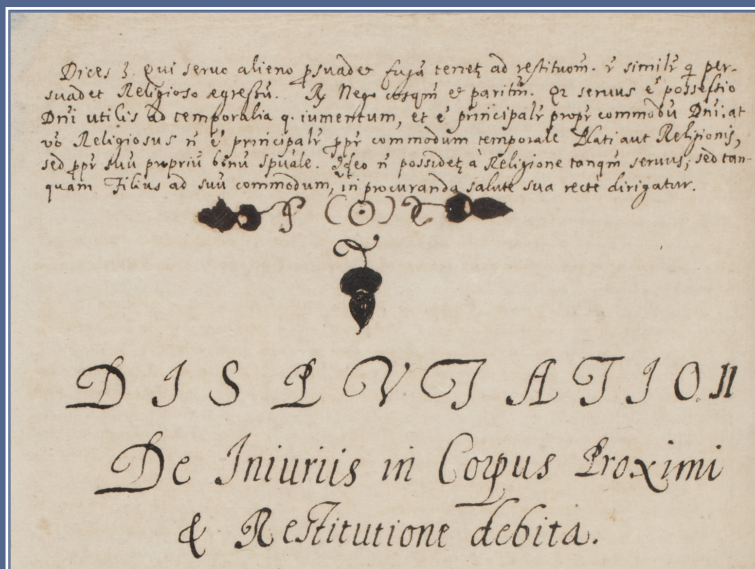 Dices 3. Qui servo alieno psuadet fugã tenetʒ ad restituom. r similr q per-
suadet Religioso egressũ. R Nego csqm et paritm. Qr servus ẽ possessio
Dnĩ utilis ad temporalia q. iumentum, et ẽ principalr propr commodũ Dnĩ: at
vo Religiosus ñ ẽ principalr ppr commodum temporale Plati aut Religionis,
sed ppr suũ propriũ bonũ spuale. Ideo ñ possidetʒ à Religione tanqm servus; sed tan-
quam Filius ad suũ commodum, in procuranda salute sua recte dirigatur.
DISPUTATIO II
De Iniuriis in Corpus Proximi
& Restitutione debita.